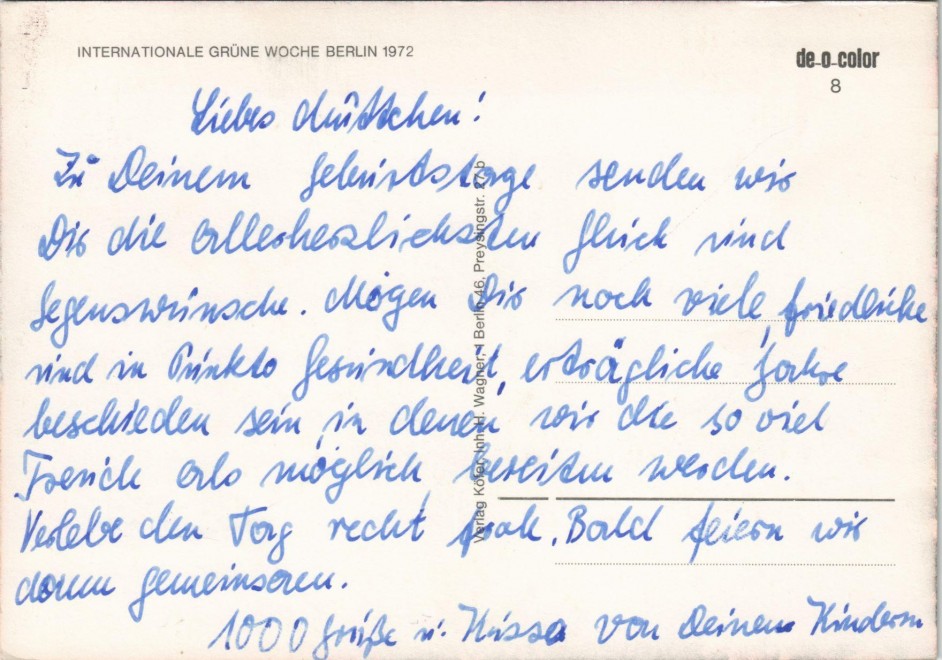 INTERNATIONALE GRÜNE WOCHE BERLIN 1972
de-o-color
8
Liebes Muttchen!
Zu Deinem Geburtstage senden wir
Dir die allerherzlichsten Glück und
Segenswünsche. Mögen Dir noch viele, friedliche
und in Punkto Gesundheit, erträgliche Jahre
beschieden sein, in denen wir die so viel
Freude als möglich bereiten werden.
Verlebe den Tag recht froh. Bald feiern wir
dann gemeinsam.
1000 Grüße u. Küsse von Deinen Kindern
Verlag Kofer, Inh. H. Wagner, 1 Berlin 46, Preysingstr. 27 b